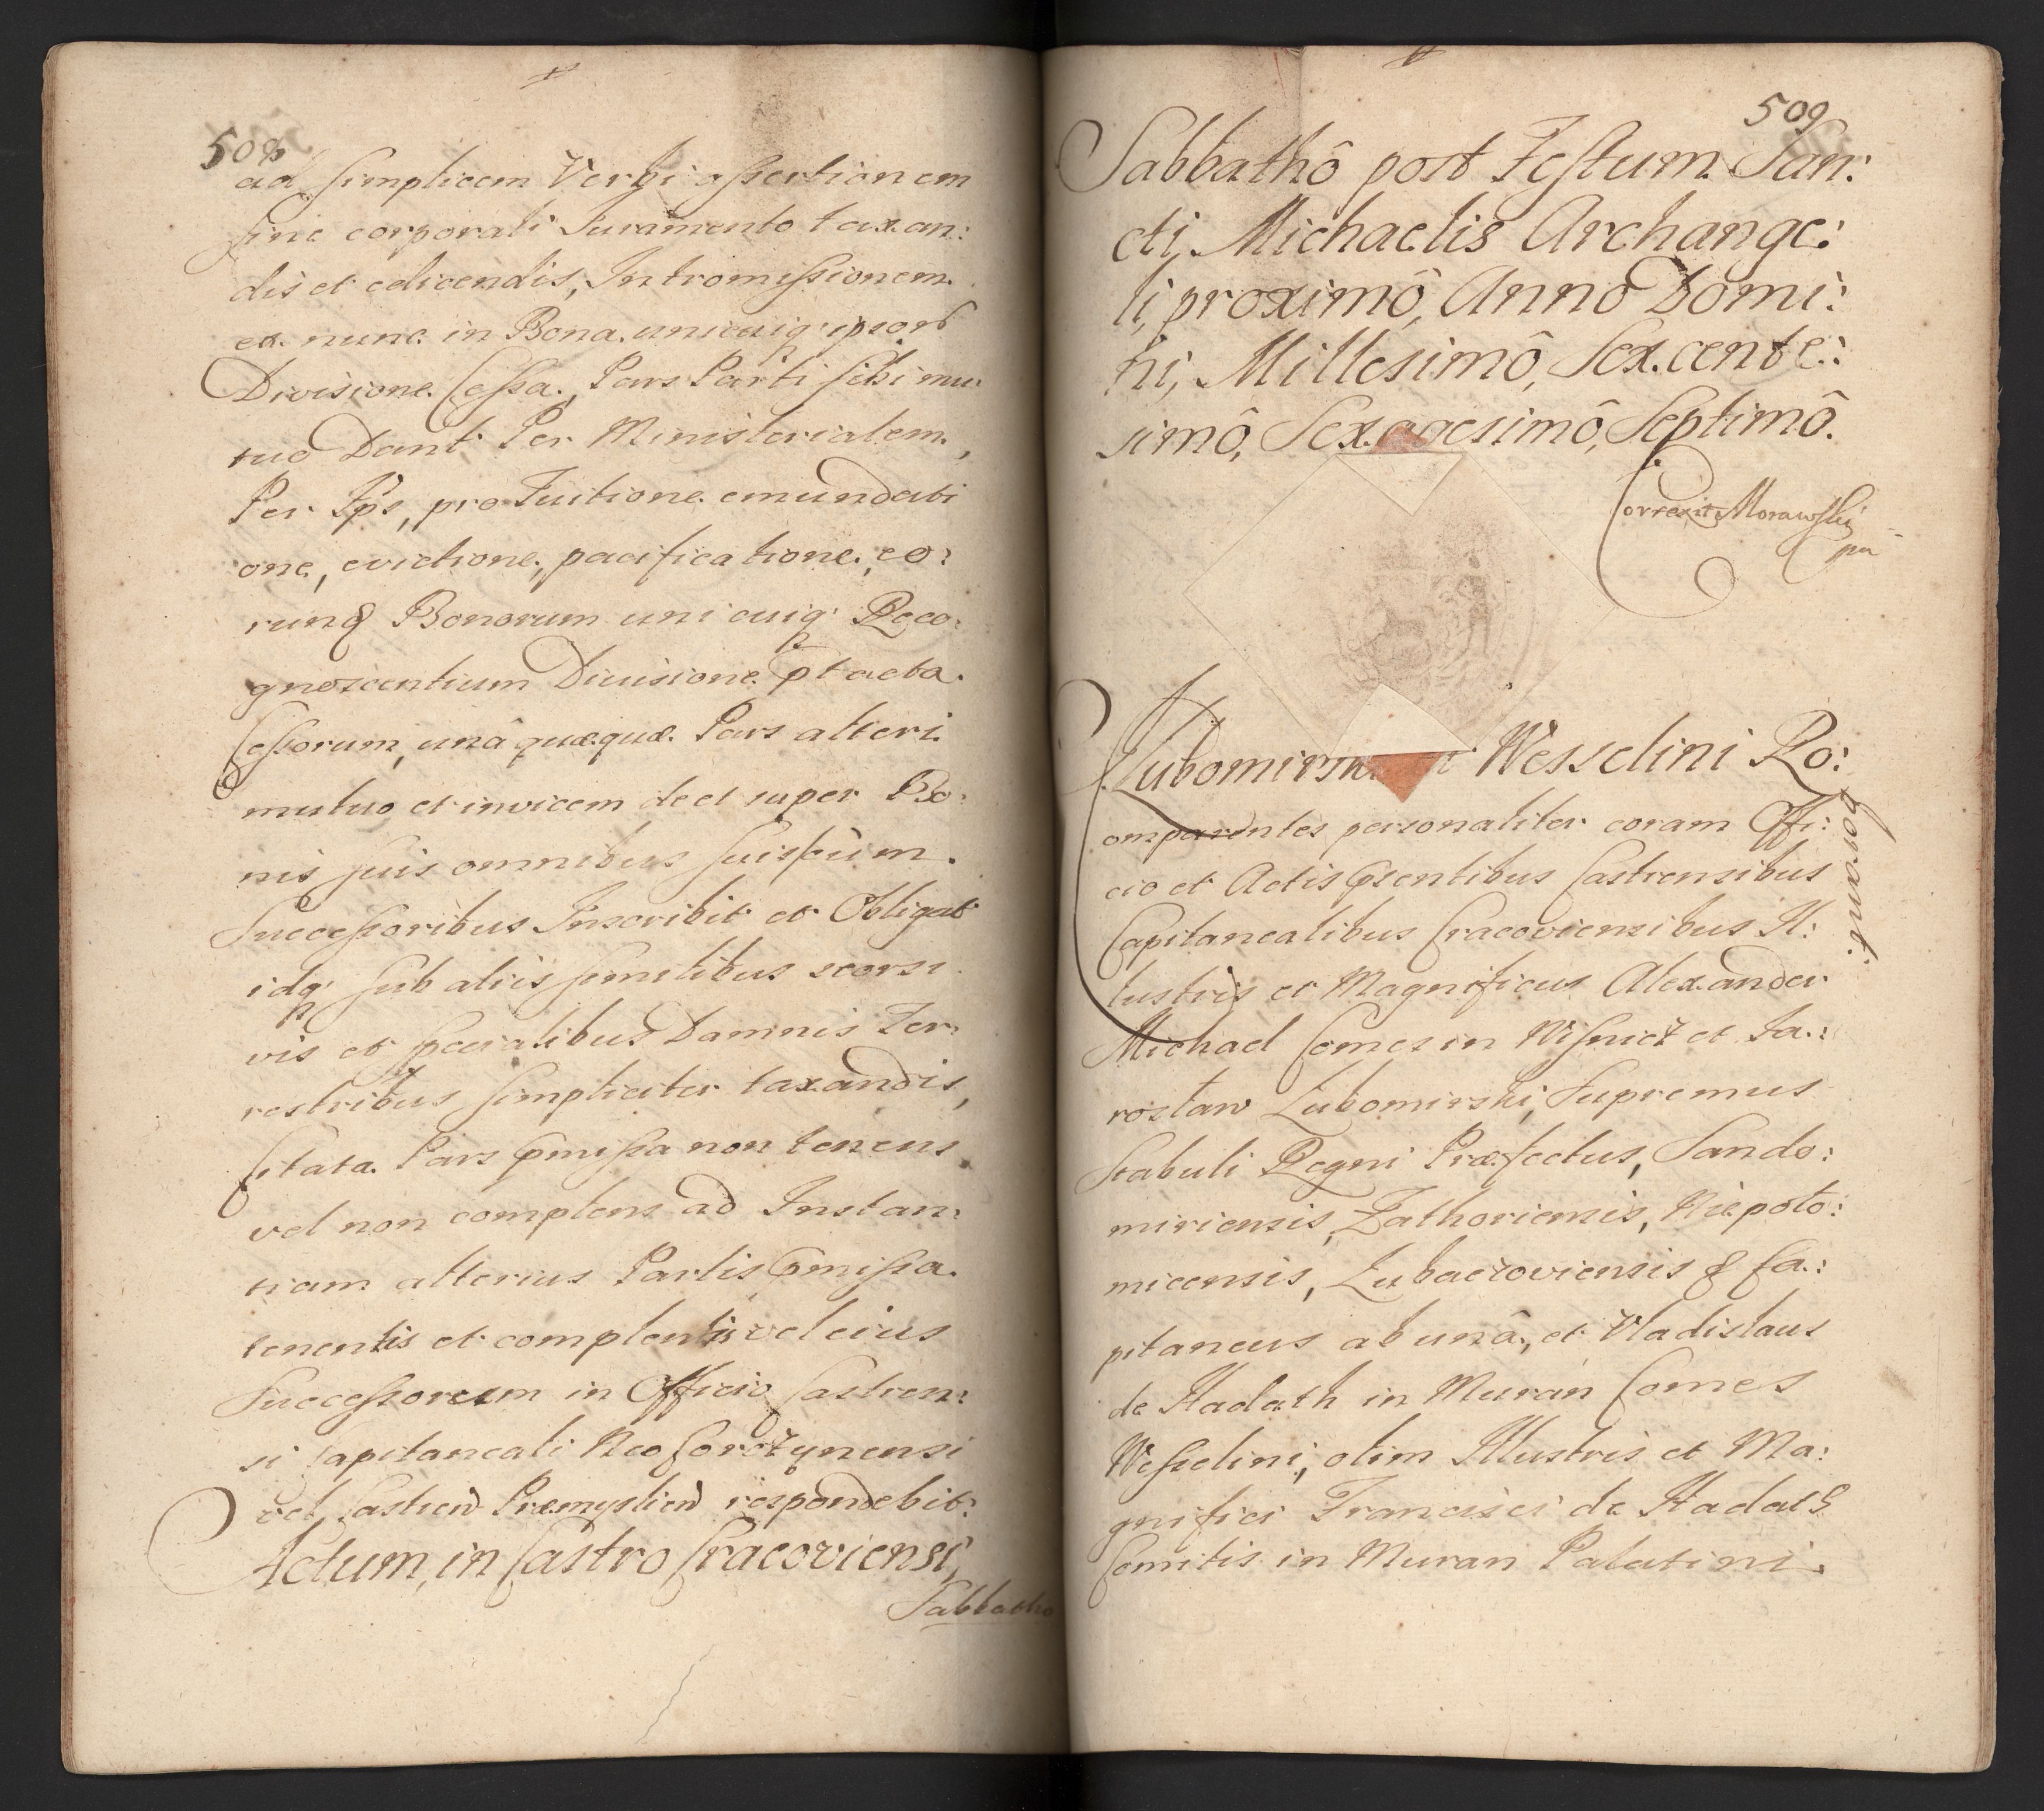 508
ad simplicem Verbi assertionem
sine corporali Juramento taxan:
dis et edicendis, Intromissionem
ex nunc in Bona unicuiq ipsorũ
Divisione Cessa, Pars Parti sibi mu:
tuo Dant Per Ministerialem,
Per Ips, pro Tuitione emundati
one, evictione, pacificatione, eo:
rund Bonorum unicuiq Reco:
gnoscentium Divisione ptacta
Cessorum, unâ quæquæ Pars alteri
mutuo et invicem de et super Bo:
nis suis omnibus suisque
Successoribus Inscribit et Obligat
idq sub aliis similibus seorsi
vis et specialibus Damnis Ter:
restribus simpliciter taxandis,
Citata Pars pmissa non tenens
vel non complens ad Instan:
tiam alterius Partis pmissa
tenentis et complentis vel eius
Successorum in Officio Castren:
si Capitaneali Neo Corotzynensi
vel Castren Præmyslien respondebit:
Actum, in Castro Cracoviensi,
Sabbatho
509
Sabbathô post Festum San:
cti, Michaelis Archange:
li, proximô, Anno Domi:
ni, Millesimô, Sex.cente:
simô, Sexagesimô, Septimô.
Correxit Morawski
mp
Lubomirski et Wesselini Ro:
borant:
omparentes personaliter coram Offi:
cio et Actis psentibus Castrensibus
Capitanealibus Cracoviensibus Il:
lustris et Magnificus Alexander
Michael Comes in Wisnicz et Ja:
roslaw Lubomirski, Supremus
Stabuli Regni Præfectus, Sando:
miriensis, Zathoriensis, Niepoto:
micensis, Lubaczoviensis & Ca:
pitaneus ab unâ, et Vladislaus
de Hadath in Muran Comes
Wesselini, olim Illustris et Ma:
gnifici Francisci de Hadath
Comitis in Muran Palatini